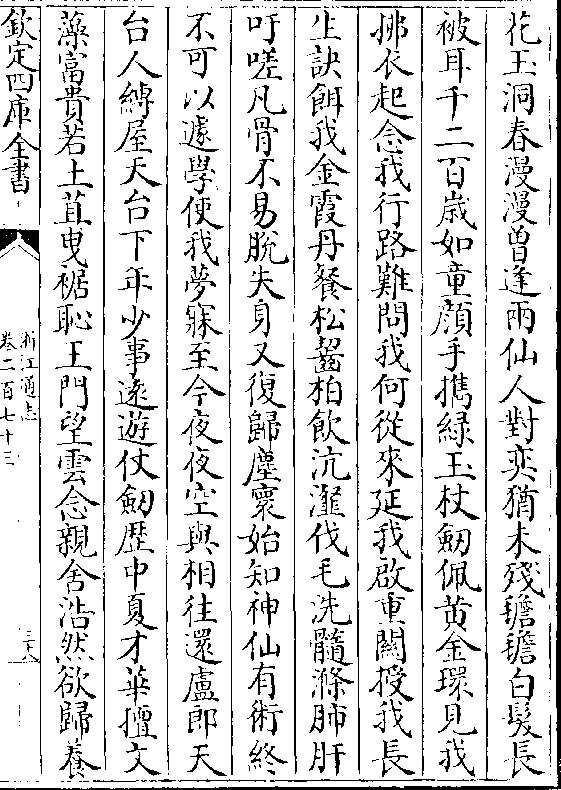 花玉洞春漫漫曽逢兩仙人對奕猶未殘䰐䰐白髮長
被耳千二百歳如童顔手擕緑玉杖劒佩黄金環見我
拂衣起念我行路難問我何從來延我啟重闗授我長
生訣餌我金霞丹餐松齧柏飲沆瀣伐毛洗髓滌肺肝
吁嗟凡骨不易脫失身又復歸塵寰始知神仙有術終
不可以遽學使我夢寐至今夜夜空與相徃還盧郎天
台人縛屋天台下年少事逺遊仗劒歴中夏才華擅文
藻富貴若土苴曵裾恥王門望雲念親舍浩然欲歸養
欽定四庫全書
浙江通志
卷二百七十三